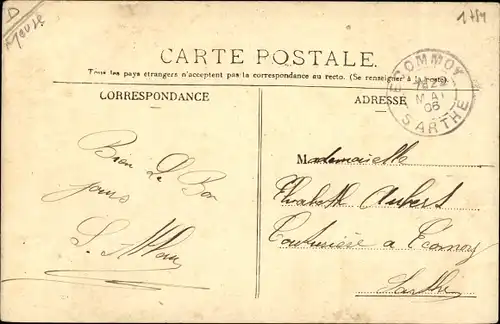 1784
CARTE POSTALE.
Tous les pays étrangers n'acceptent pas la correspondance au recto. (Se renseigner à la poste).
CORRESPONDANCE
ADRESSE
ECOMMOY
MAI
06
SARTHE
Bien Le Bon
jours
Mademoiselle
Elisabeth Aubert
Couturière a Ecomoy
Sarthe